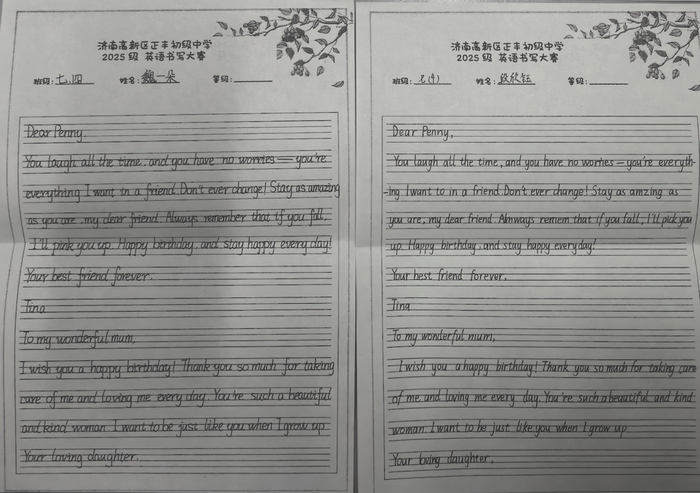 济南高新区正丰初级中学
2025级 英语书写大赛
班级: 七.四 姓名: 魏一朵 等级:
Dear Penny.
You laugh all the time, and you have no worries — you're
everything I want in a friend. Don't ever change! Stay as amazing
as you are, my dear friend. Always remember that if you fall,
I'll pink you up. Happy birthday, and stay happy every day!
Your best friend forever.
Tina
To my wonderful mum,
I wish you a happy birthday! Thank you so much for taking
care of me and loving me every day. You're such a beautiful
and kind woman. I want to be just like you when I grow up
Your loving daughter.
济南高新区正丰初级中学
2025级 英语书写大赛
班级: 姓名: 段欣钰 等级:
Dear Penny,
You laugh all the time, and you have no worries — you're everyth-
-ing I want to in a friend. Don't ever change! Stay as amzing as
you are, my dear friend. Always remem that if you fall, I'll pick you
up. Happy birthday, and stay happy everyday!
Your best friend forever.
Tina
To my wonderful mum,
I wish you a happy birthday! Thank you so much for taking care
of me and loving me every day. You're such a beautiful and kind
woman. I want to be just like you when I grow up
Your loving daughter.